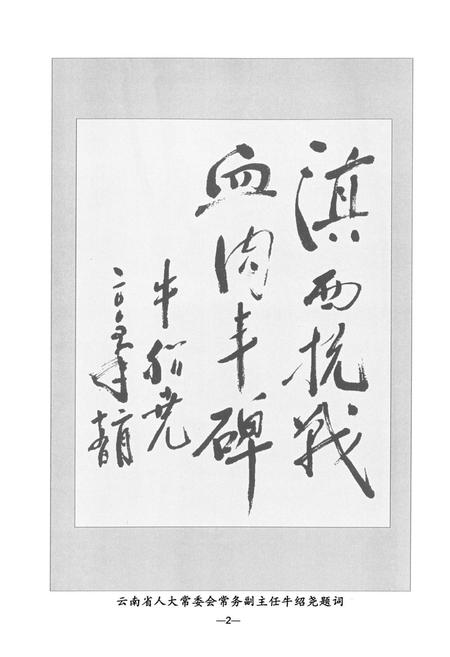 滇西抗战
血肉丰碑
牛绍尧
二〇〇五年
云南省人大常委会常务副主任牛绍尧题词
—2—